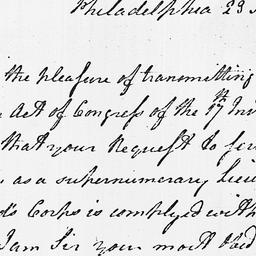 Philadelphia 23
the pleasure of transmitting
Act of Congress of the 17th
that your Request to
as a supernumerary
Corps is complyed with
I am Sir your most Obed